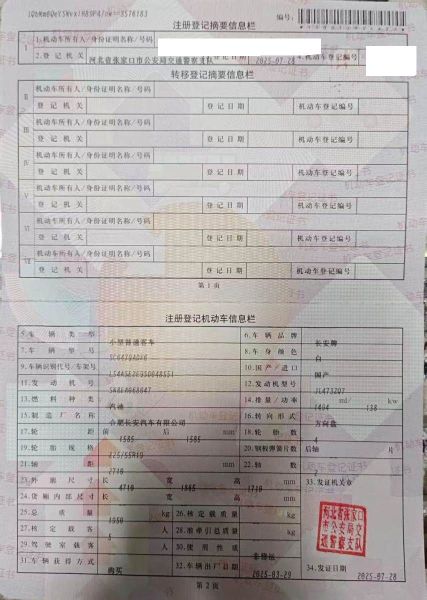 注册登记摘要信息栏
编号:
1.机动车所有人/身份证明名称/号码
2.登记机关
河北省张家口市公安局交通警察支队
2025-07-28
转移登记摘要信息栏
机动车所有人/身份证明名称/号码
登记机关 登记日期 机动车登记编号
机动车所有人/身份证明名称/号码
登记机关 登记日期 机动车登记编号
机动车所有人/身份证明名称/号码
登记机关 登记日期 机动车登记编号
机动车所有人/身份证明名称/号码
登记机关 登记日期 机动车登记编号
机动车所有人/身份证明名称/号码
登记机关 登记日期 机动车登记编号
机动车所有人/身份证明名称/号码
登记机关 登记日期 机动车登记编号
第1页
注册登记机动车信息栏
5.车辆类型 小型普通客车 6.车辆品牌 长安牌
7.车辆型号 8.车身颜色 白
9.车辆识别代号/车架号 10.国产/进口 国产
11.发动机号 12.发动机型号
13.燃料种类 汽油 14.排量/功率 ml/ 138 kw
15.制造厂名称 合肥长安汽车有限公司 16.转向形式 方向盘
17.轮距 前 1585 后 1585 mm 18.轮胎数 4
19.轮胎规格 225/55R19 20.钢板弹簧片数 后轴 片
21.轴距 2710 mm 22.轴数 2
23.外廓尺寸 长 宽 高 1710 mm 33.发证机关章
24.货厢内部尺寸 长 宽 高 mm
25.总质量 1950 kg 26.核定载质量 kg
27.核定载客 5 人 28.准牵引总质量 kg
29.驾驶室载客 人 30.使用性质 非营运
31.车辆获得方式 购买 32.车辆出厂日期 2025-03-29 34.发证日期 2025-07-28
河北省张家口市公安局交通警察支队
第2页